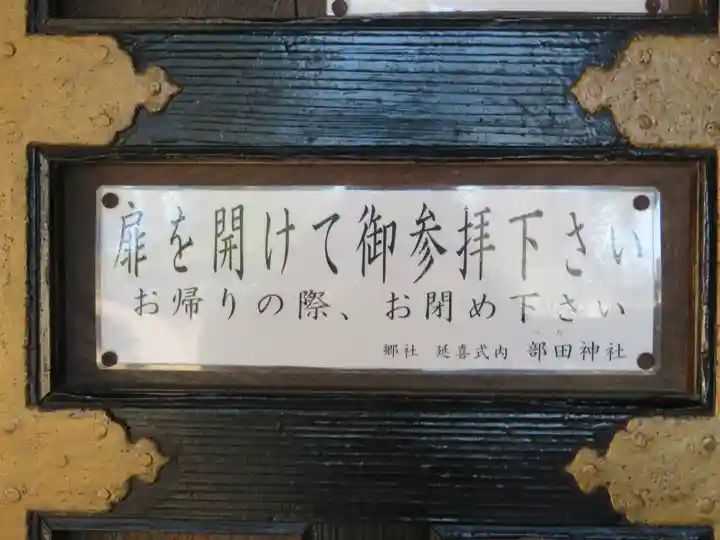 扉を開けて御参拝下さい
お帰りの際、お閉め下さい
郷社 延喜式内 部田神社